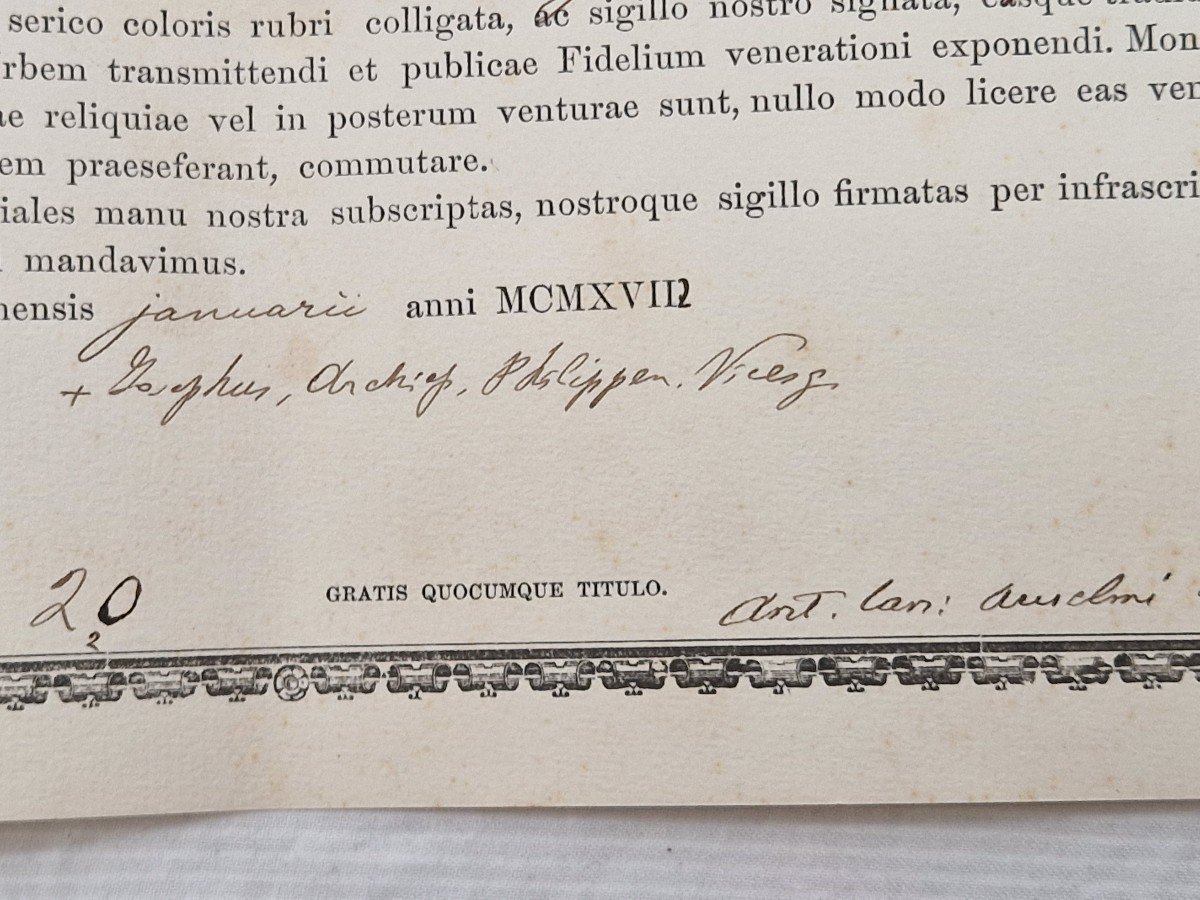 serico coloris rubri colligata, ac sigillo nostro signata, easque
rbem transmittendi et publicae Fidelium venerationi exponendi. Mon
ae reliquiae vel in posterum venturae sunt, nullo modo licere eas ven
em praeseferant, commutare.
iales manu nostra subscriptas, nostroque sigillo firmatas per infrascri
mandavimus.
mensis januarii anni MCMXVIII
+ Josephus, Archiep, Philippen. Vicesg.
20
2
GRATIS QUOCUMQUE TITULO.
Ant. Can: Anselmi